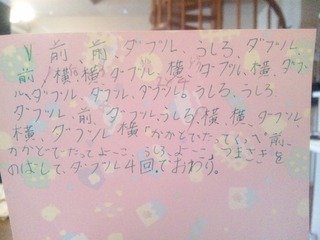 V 前、前、ダブル、うしろ、ダブル、
前、横、横、ダーブル、横、ダブル、横、ダブ
ル、ダブル、ダブル、ダブル。うしろ、うしろ
ダーブル、前、ダーブル、うしろ、横、横、ダーブル
横、ダーブル、横「かかとでたってくっき、前、
かかとーでーたってよーこ、うしろ、よーこ つまさきを
のばして、ダブル4回。でおわり。